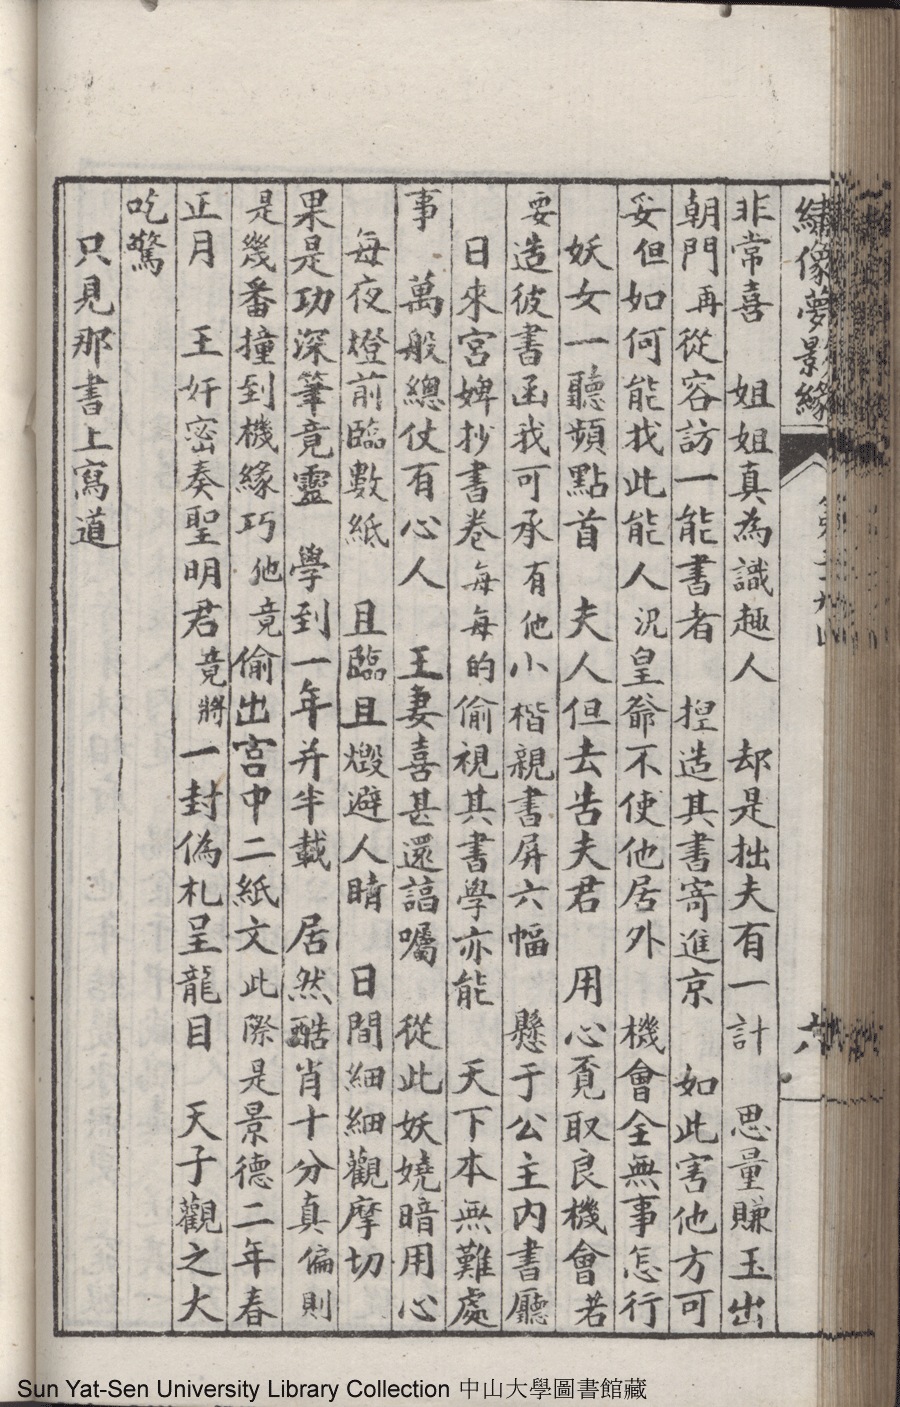 繡像夢景緣
六
非常喜　姐姐真為識趣人　却是拙夫有一計　思量賺玉出
朝門再從容訪一能書者　揑造其書寄進京　如此害他方可
妥但如何能找此能人况皇爺不使他居外　機會全無事怎行
妖女一聽頻點首　夫人但去告夫君　用心覔取良機會若
要造彼書函我可承有他小楷親書屏六幅　懸于公主內書廳
日來宮婢抄書卷每每的偷視其書學亦能　天下本無難處
事　萬般總仗有心人　王妻喜甚還諄囑　從此妖嬈暗用心
每夜燈前臨數紙　且臨且燬避人睛　日間細細觀摩切
果是功深筆竟靈　學到一年并半載　居然酷肖十分真偏則
是幾番撞到機緣巧他竟偷出宮中二紙文此際是景德二年春
正月　王奸密奏聖明君竟將一封偽札呈龍目　天子觀之大
吃驚
只見那書上寫道
Sun Yat-Sen University Library Collection 中山大學圖書館藏